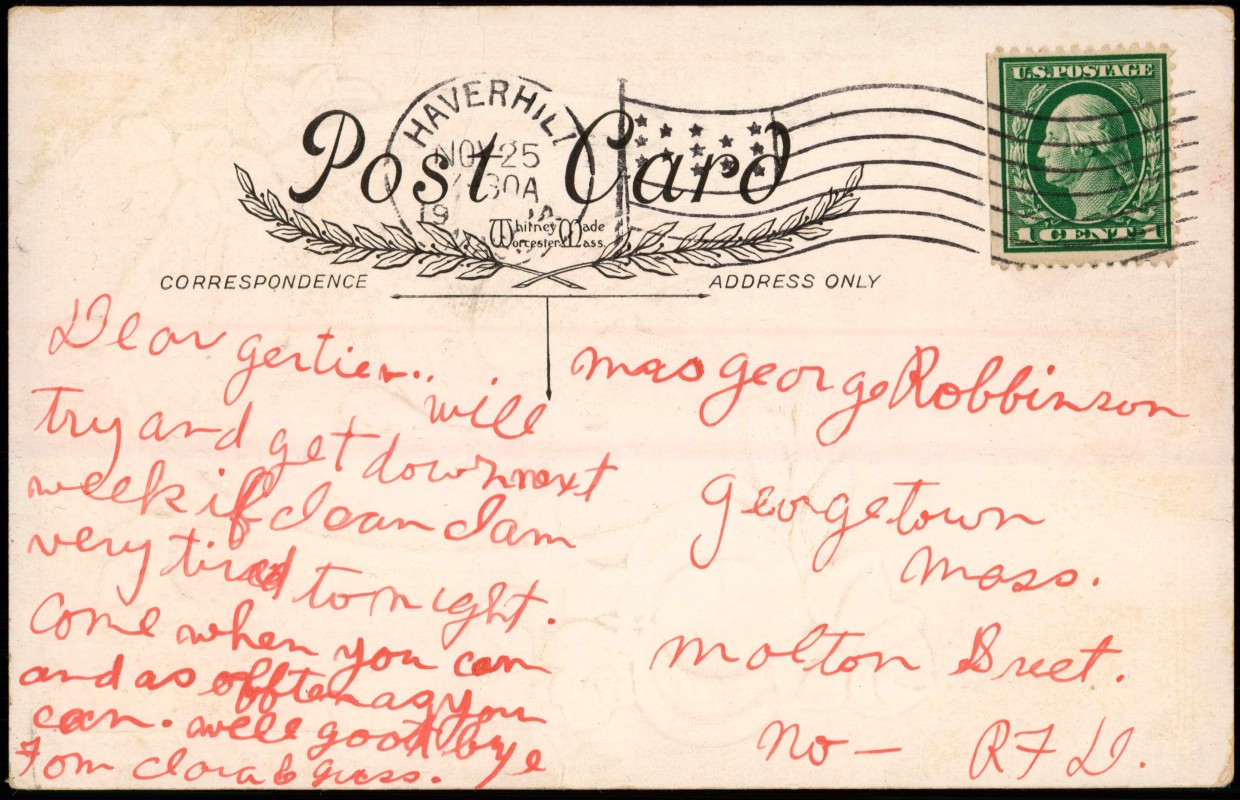 HAVERHILL
NOV 25
30A
19
Post Card
Whitney Made
Worcester Mass.
U.S.POSTAGE
1 CENT 1
CORRESPONDENCE
ADDRESS ONLY
Dear gertie.. will
try and get down next
week if I can I am
very tired tonight.
Come when you can
and as offten as you
can. well good bye
fom Clara
mrs george Robbinson
Georgetown
Mass.
molton Sreet.
No — RFD.